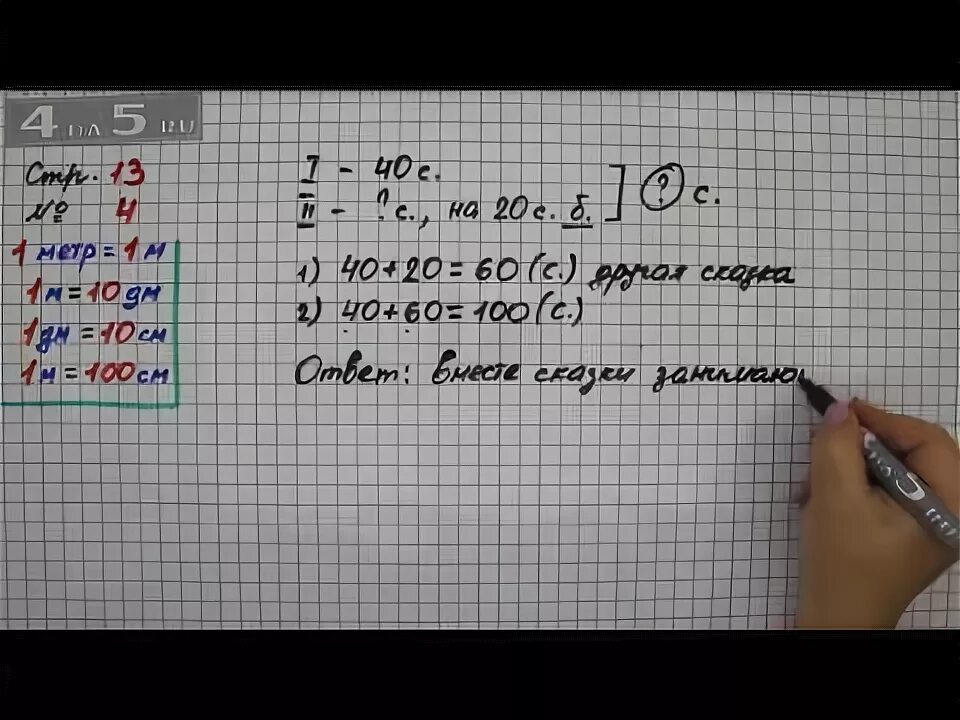 4 на 5 RU
Стр. 13
№ 4
1 метр = 1 м
1 м = 10 дм
1 дм = 10 см
1 м = 100 см
I – 40 с.
II – ? с., на 20 с. б. ] ? с.
1) 40 + 20 = 60 (с.) другая сказка
2) 40 + 60 = 100 (с.)
Ответ: вместе сказки занимаю